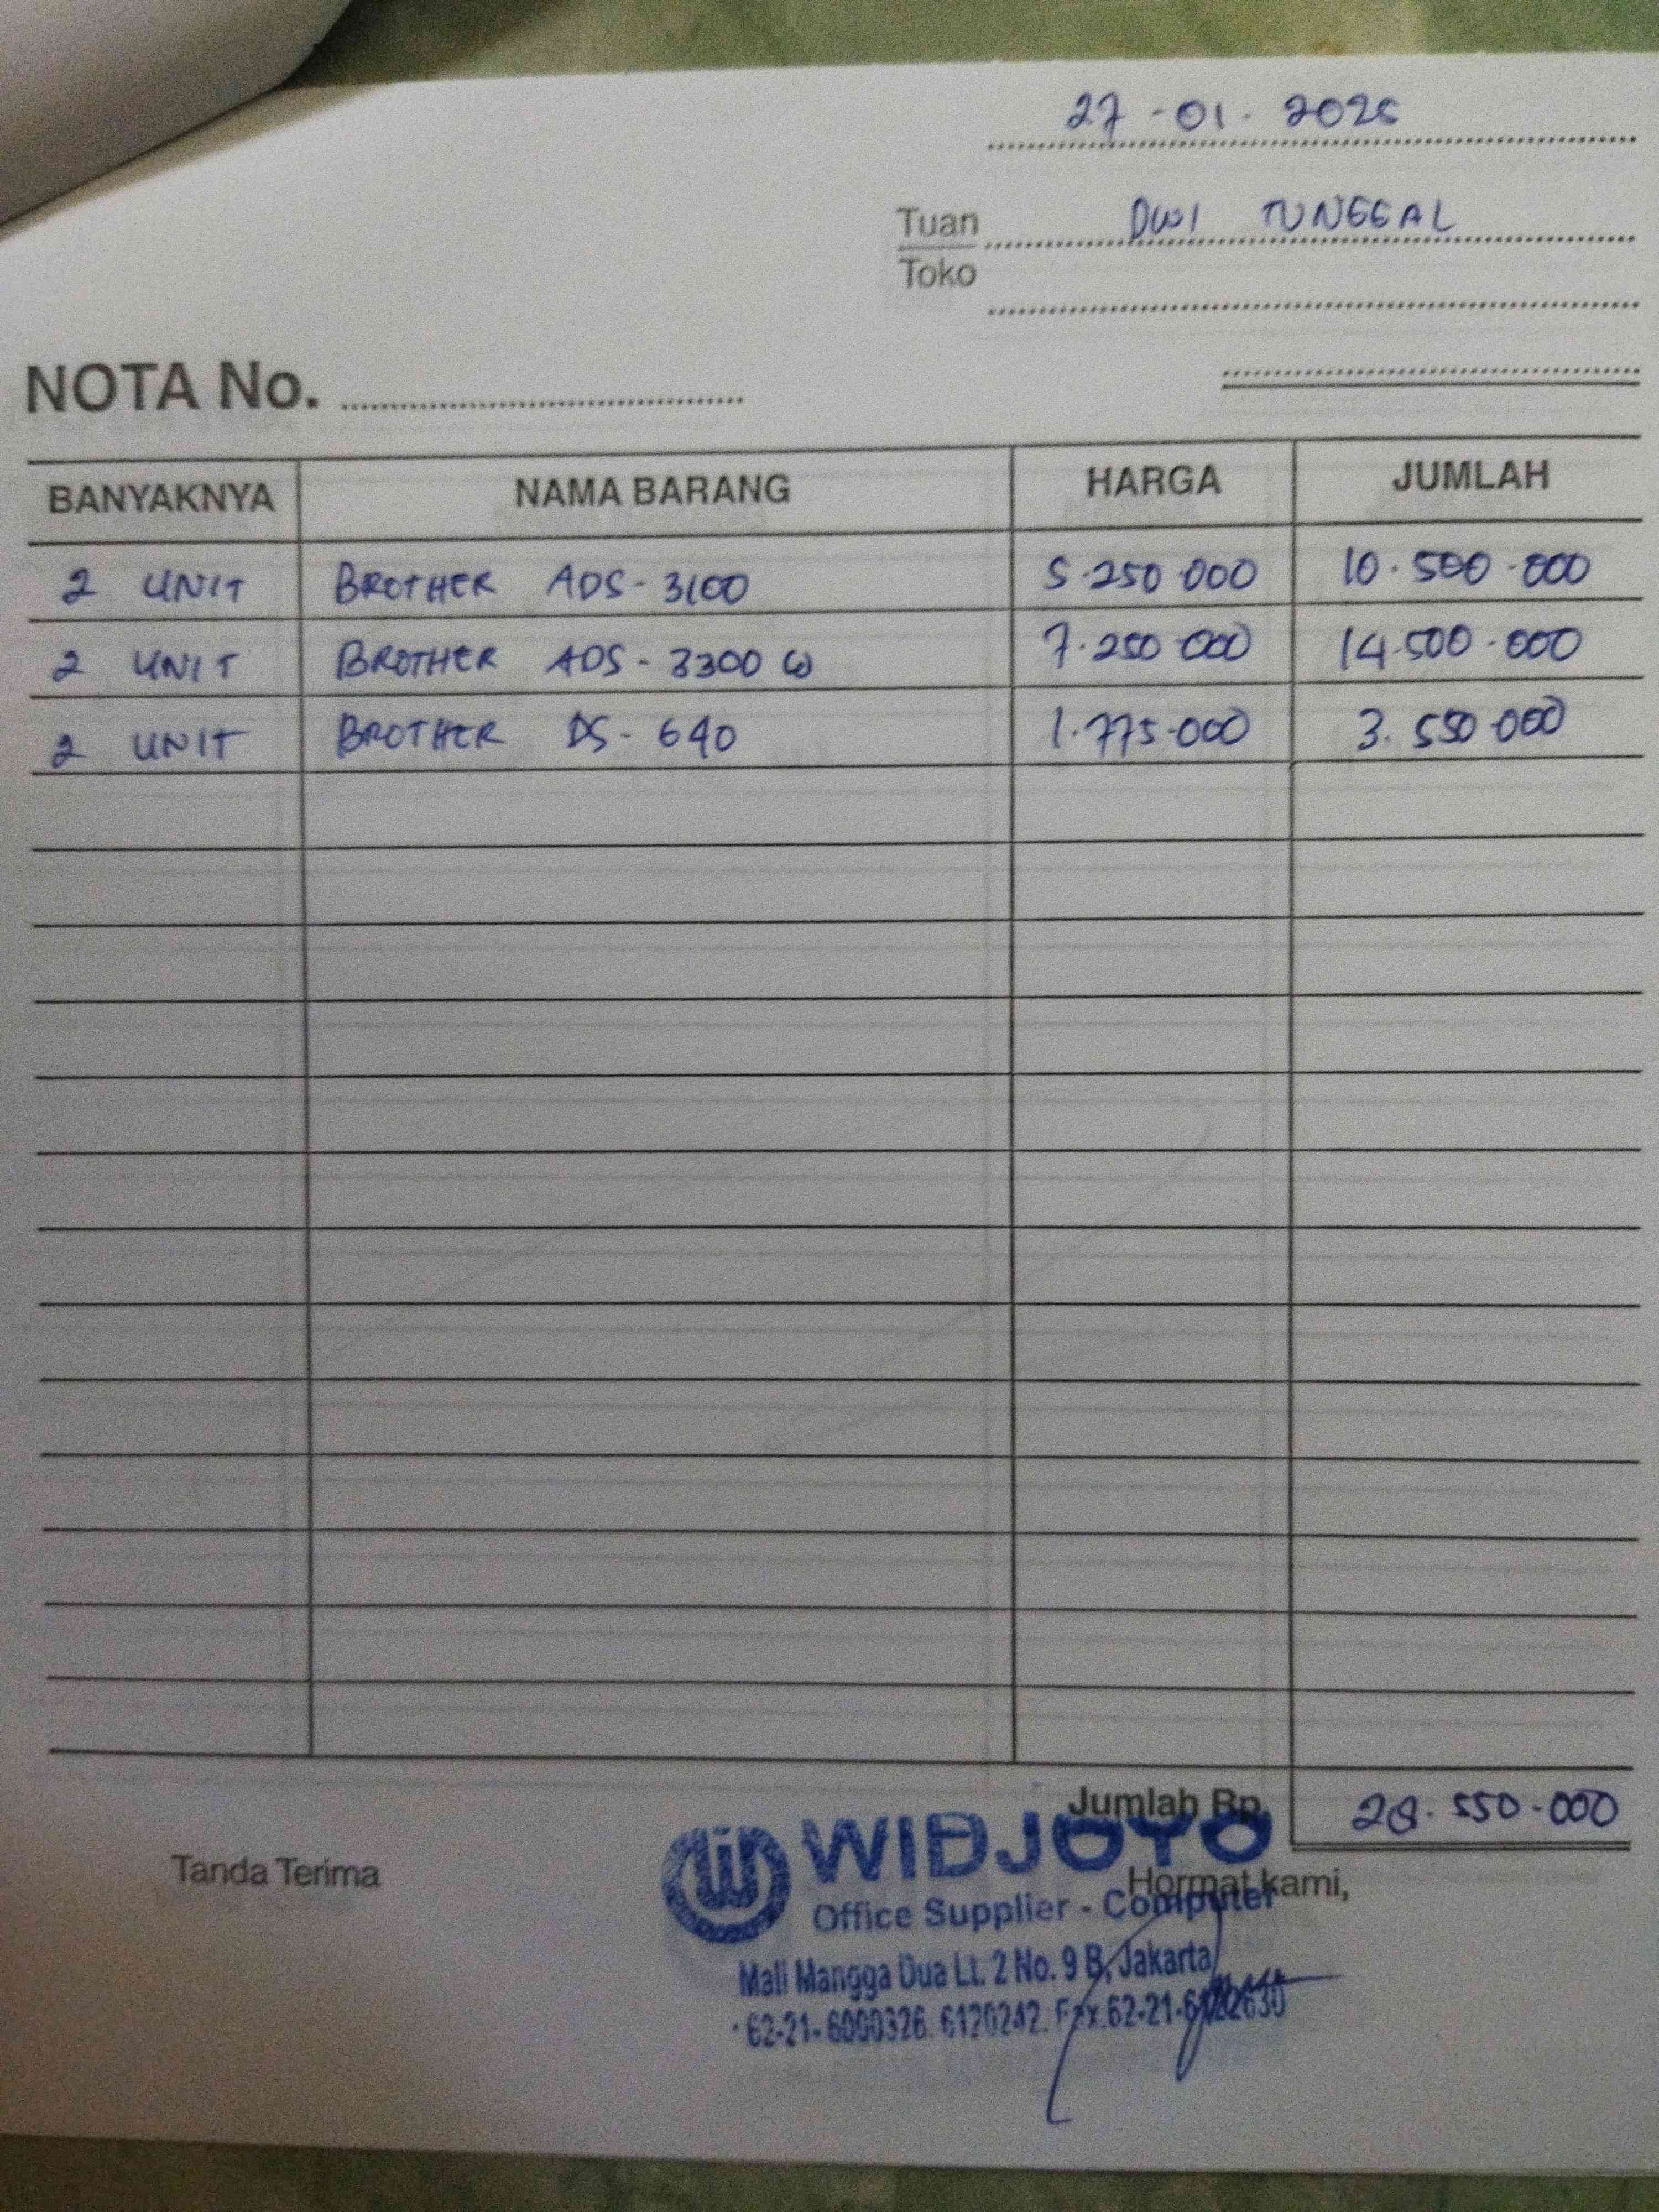 27-01-2025
Tuan DWI TUNGGAL
Toko
NOTA No.
BANYAKNYA NAMA BARANG HARGA JUMLAH
2 UNIT BROTHER ADS-3100 5.250.000 10.500.000
2 UNIT BROTHER ADS-3300 W 7.250.000 14.500.000
2 UNIT BROTHER DS-640 1.775.000 3.550.000
Jumlah Rp. 28.550.000
Tanda Terima Hormat kami,
WIDJOYO
Office Supplier - Computer
Mall Mangga Dua Lt. 2 No. 9 B, Jakarta
62-21- 6000326. 6120242. Fax.62-21-6122630